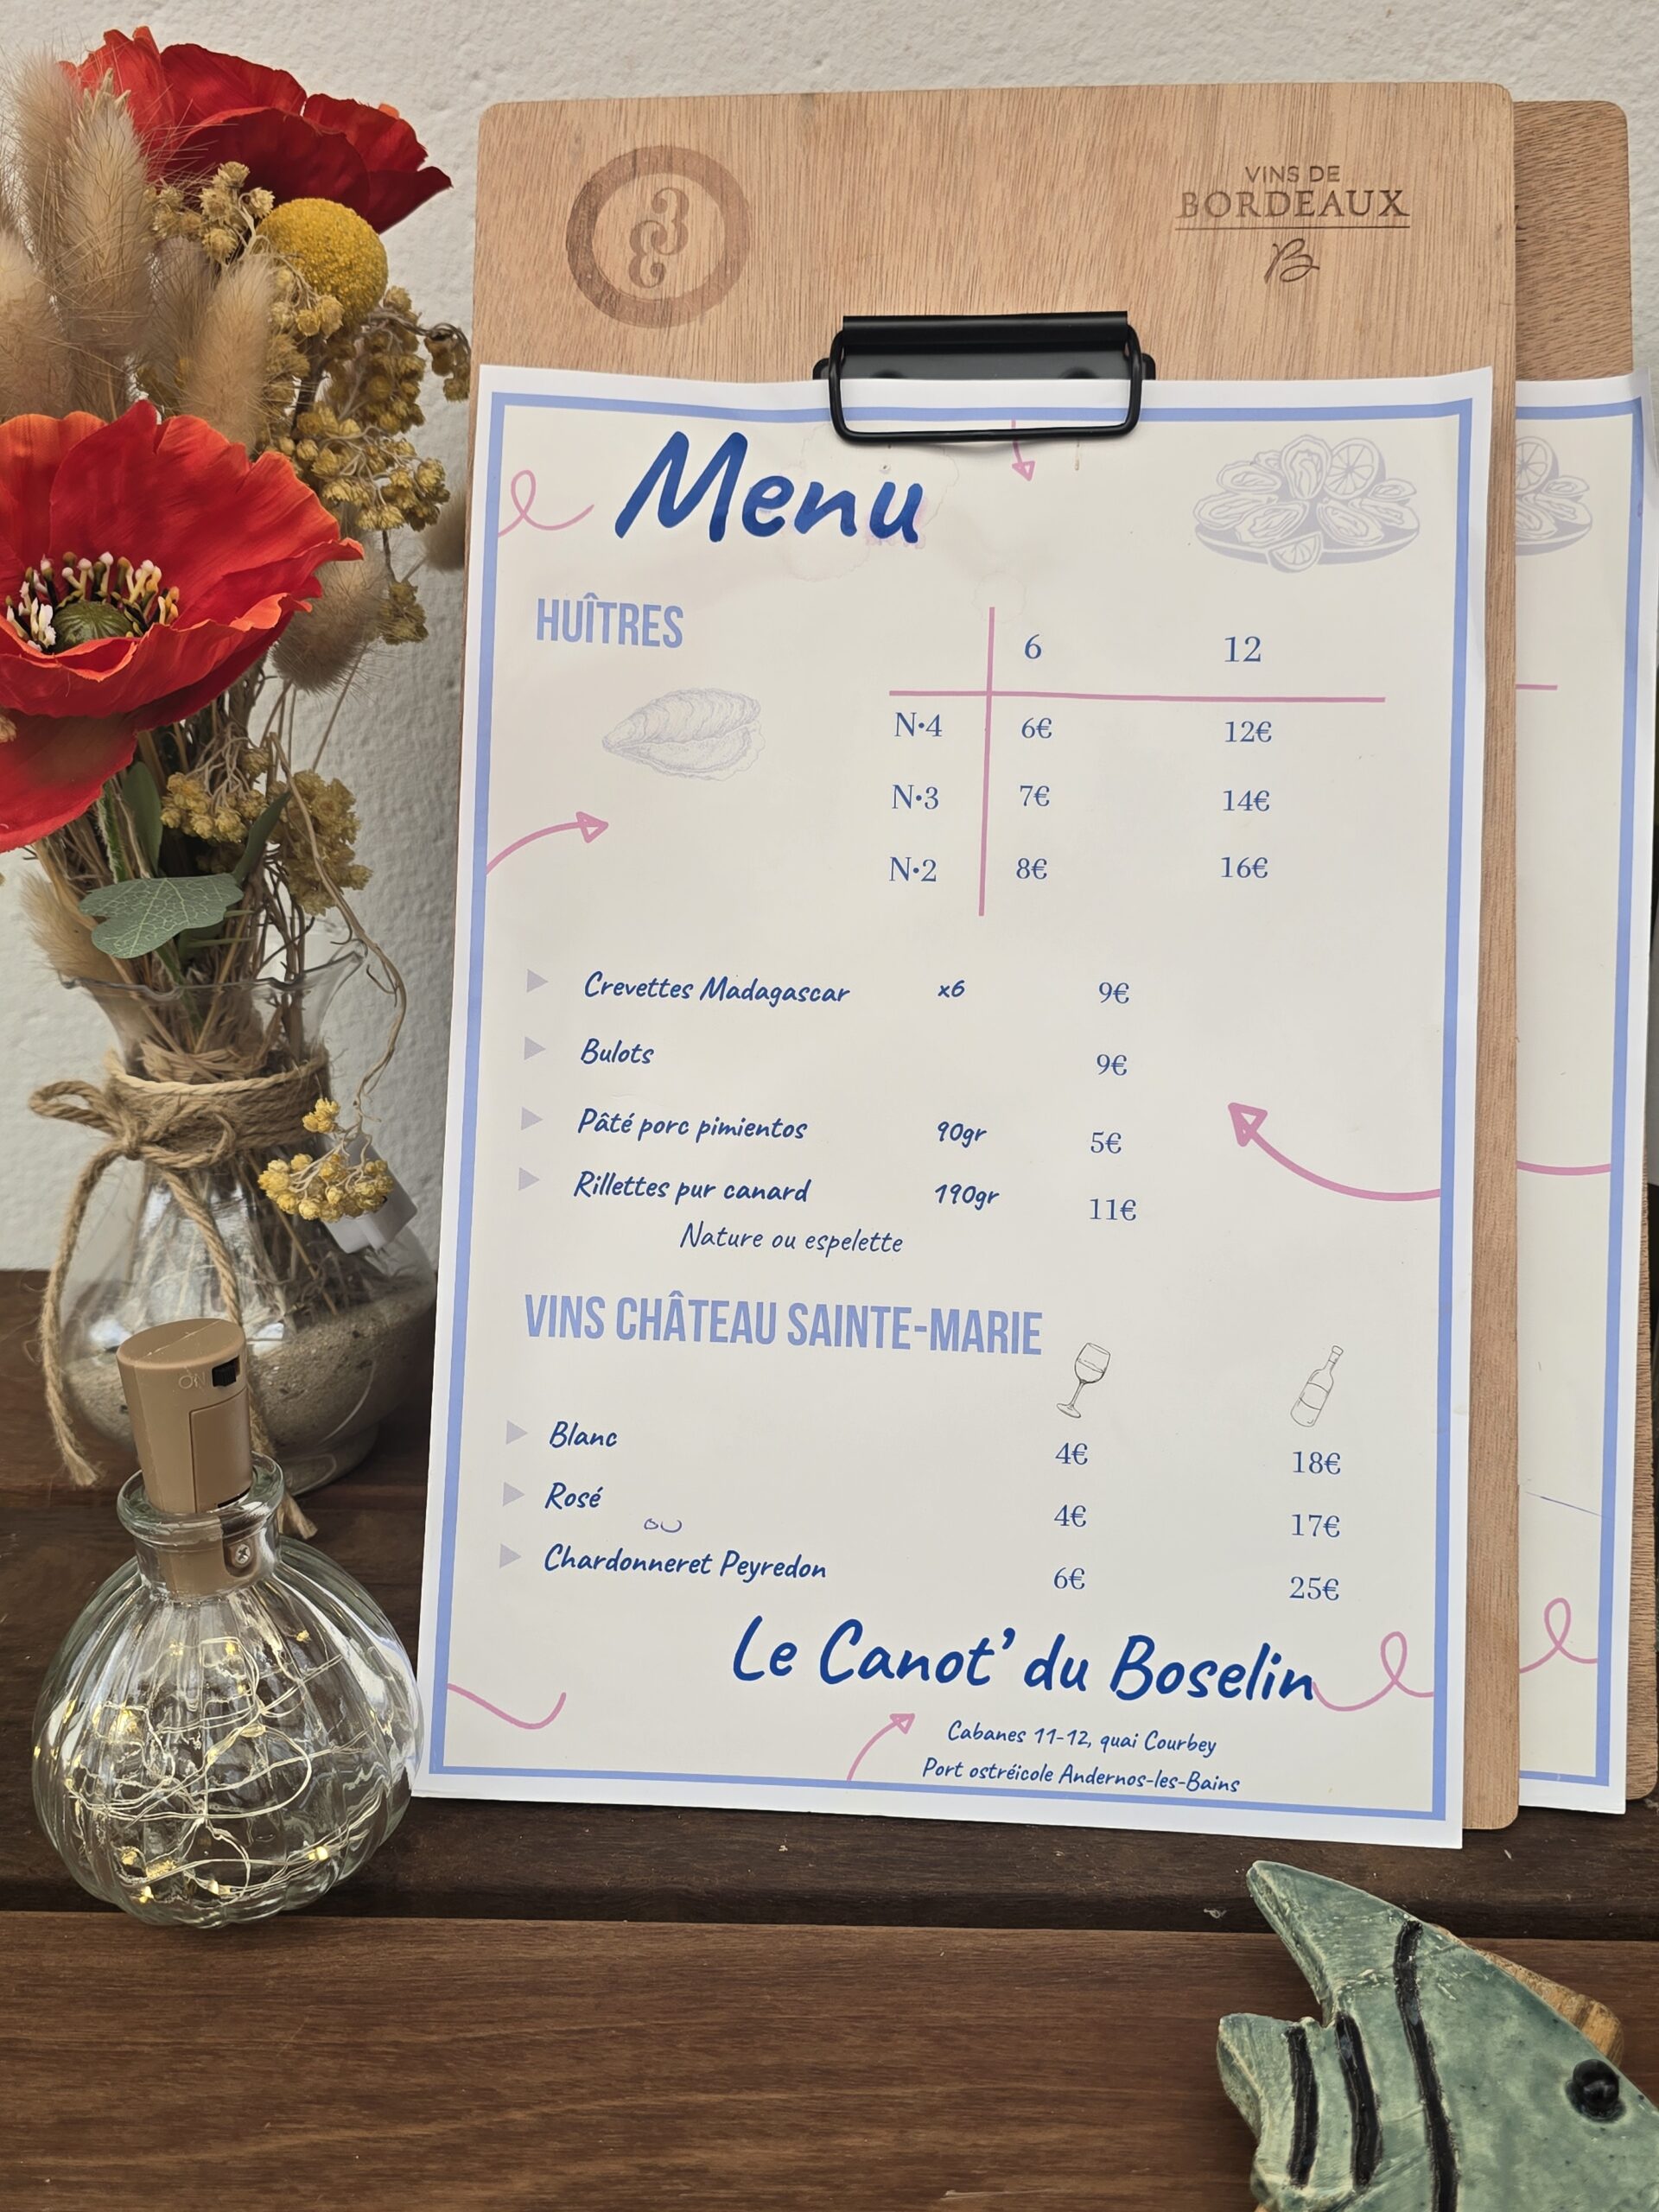 VINS DE
BORDEAUX
B
Menu
HUÎTRES
6 12
N•4 6€ 12€
N•3 7€ 14€
N•2 8€ 16€
Crevettes Madagascar x6 9€
Bulots 9€
Pâté porc pimientos 90gr 5€
Rillettes pur canard 190gr 11€
Nature ou espelette
VINS CHÂTEAU SAINTE-MARIE
Blanc 4€ 18€
Rosé 4€ 17€
ou
Chardonneret Peyredon 6€ 25€
Le Canot' du Boselin
Cabanes 11-12, quai Courbey
Port ostréicole Andernos-les-Bains
ON